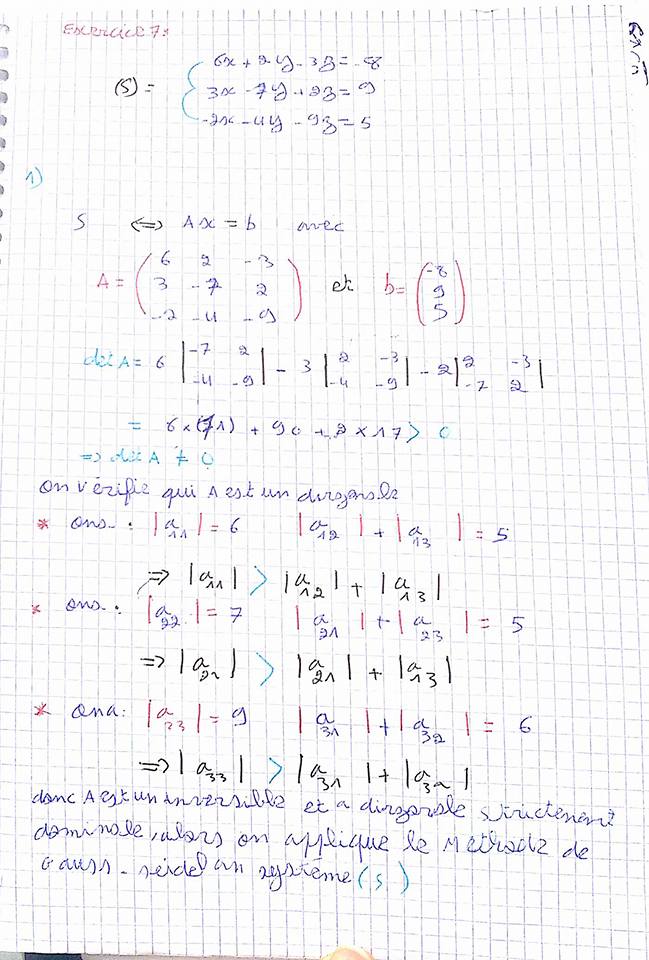 Exercice 7:
6x + 2y - 3z = -8
(S) = 3x - 7y + 2z = 9
-2x - 4y - 9z = 5
1)
S ⟺ Ax = b avec
A = ( 6 2 -3
3 -7 2
-2 -4 -9 ) et b = ( -8
9
5 )
dét A = 6 | -7 2 | - 3 | 2 -3 | - 2 | 2 -3 |
| -4 -9 | | -4 -9 | | -7 2 |
= 6×(71) + 90 + 2×17 > 0
⟹ dét A ≠ 0
on vérifie qui A est un
* ona : |a11| = 6 |a12| + |a13| = 5
⟹ |a11| > |a12| + |a13|
* ona : |a22| = 7 |a21| + |a23| = 5
⟹ |a22| > |a21| + |a13|
* ona : |a33| = 9 |a31| + |a32| = 6
⟹ |a33| > |a31| + |a32|
donc A est un inversible et a strictement
alors on applique le de
Gauss-seidel au système (S)